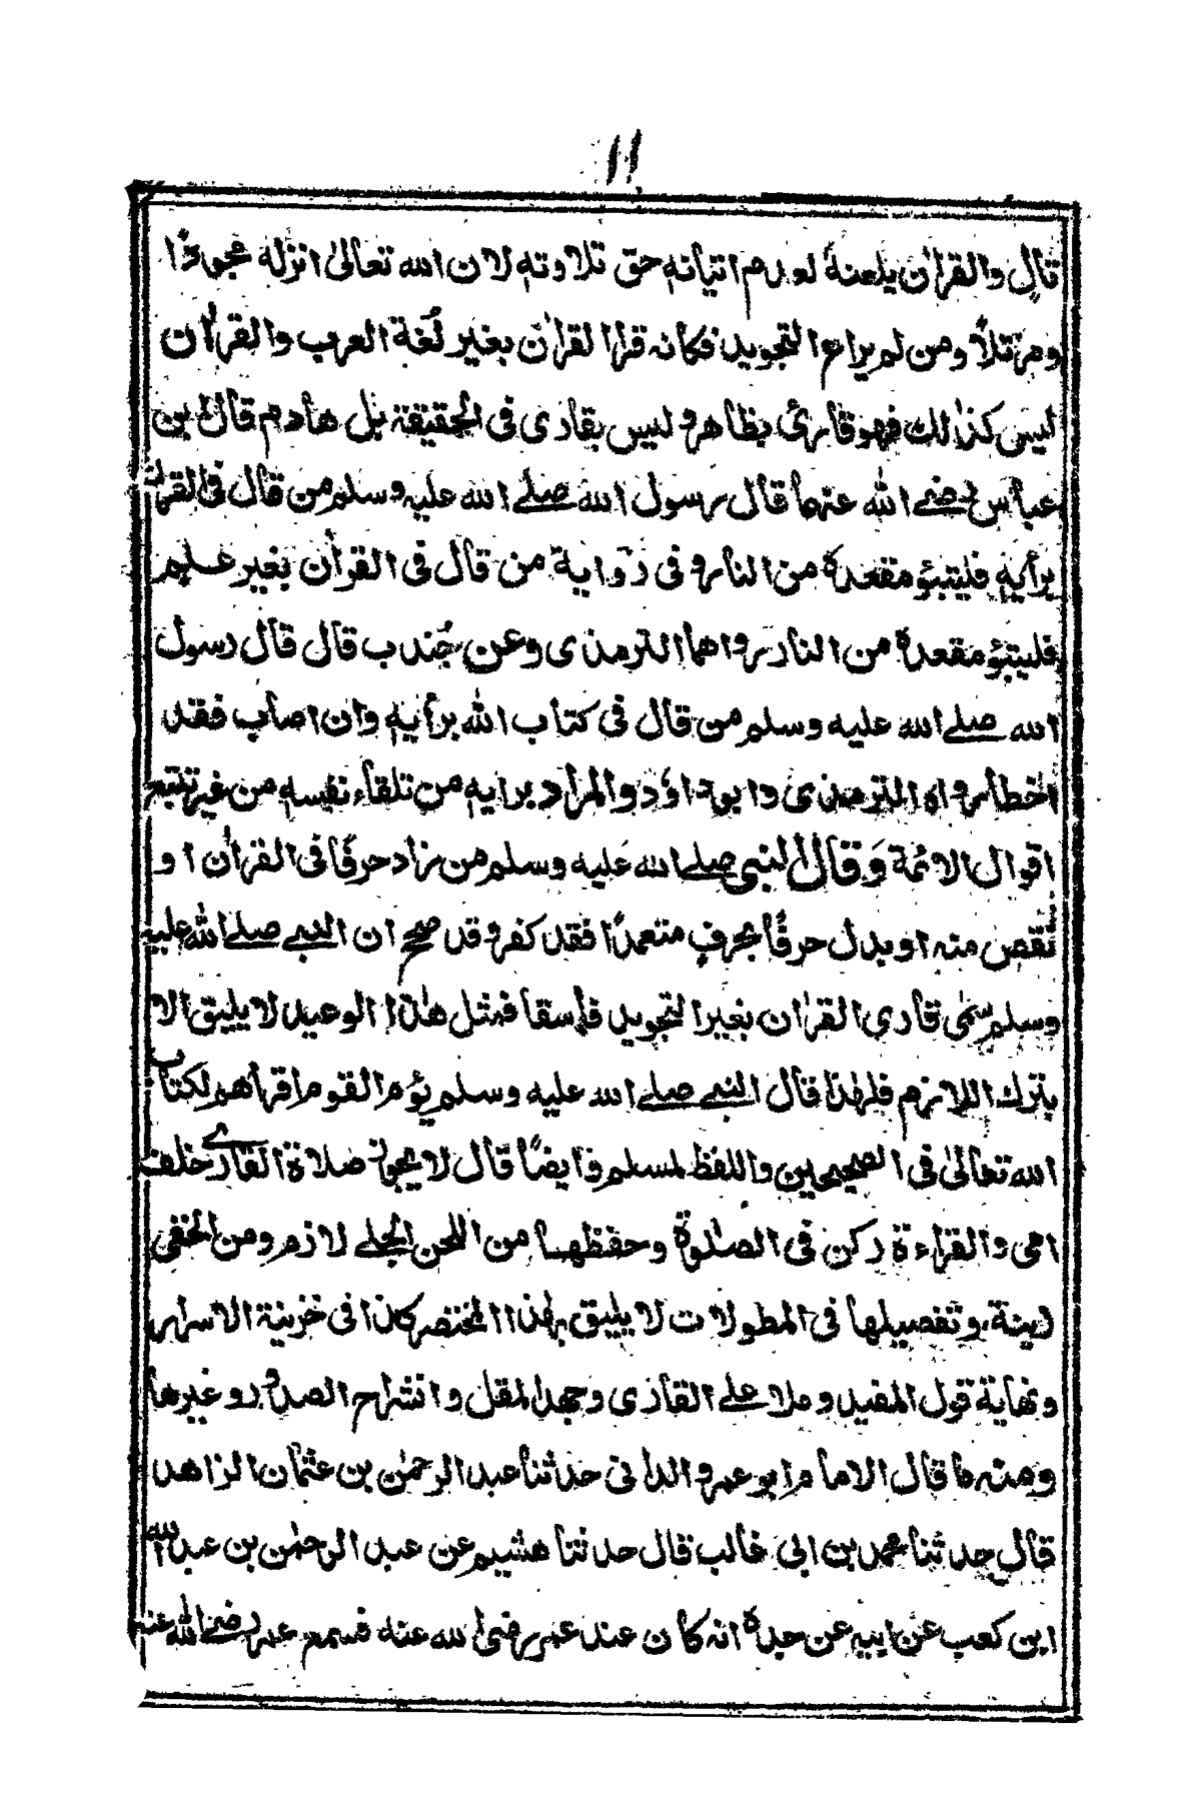 ١١
قال والقران يلعنهٗ لعدم اتيانه حق تلاوته لان الله تعالىٰ انزله مجودًا
ومرتلاً ومن لم يراع التجويد فكانه قرا القراٰن بغير لُغة العرب والقراٰن
ليس كذالك فهو قارئ بظاهره ليس بقارى فى الحقيقة بل هادم قال ابن
عباس رضے الله عنهما قال رسول الله صلے الله عليه وسلم من قال فى القراٰن
برأيه فليتبؤ مقعده من النار وفى رواية من قال فى القراٰن بغير علم
فليتبؤ مقعده من النار رواهما الترمذى وعن جُندب قال قال رسول
الله صلے الله عليه وسلم من قال فى كتاب الله برأيه وان اصاب فقد
اخطأ رواه الترمذى وابوداؤد والمراد برايه من تلقاء نفسه من غير تتبع
اقوال الائمة وقال النبى صلے الله عليه وسلم من زاد حرفًا فى القراٰن او
نُقص منه او بدل حرفًا بحرفٍ متعمدًا فقد كفر وقد صحح ان النبے صلے الله عليه
وسلم سمّٰى قارى القراٰن بغير التجويد فاسقا فمثل هٰذا الوعيد لا يليق الا
بترك اللازم فلهٰذا قال النبے صلے الله عليه وسلم يؤم القوم اقرأهم لكتاب
الله تعالىٰ فى الصحيحين واللفظ لمسلم وايضًا قال لا يجوز صلاة القارے خلف
امى والقراءة ركن فى الصلوٰة وحفظها من اللحن الجلے لازم ومن الخفى
زينة، وتفصيلها فى المطولات لا يليق بهٰذا المختصر كذا فى خزينة الاسرار
ونهاية قول المفيد وملا علے القارى وجهد المقل وانشراح الصدور وغيرها
ومنه ما قال الامام ابو عمرو الدانى حدثنا عبد الرحمٰن بن عثمان الزاهد
قال حدثنا محمد بن ابى غالب قال حدثنا هشيم عن عبد الرحمٰن بن عبد الله
ابن كعب عن ابيه عن جده انه كان عند عمر رضى الله عنه فسمع عمر رضے الله عنه